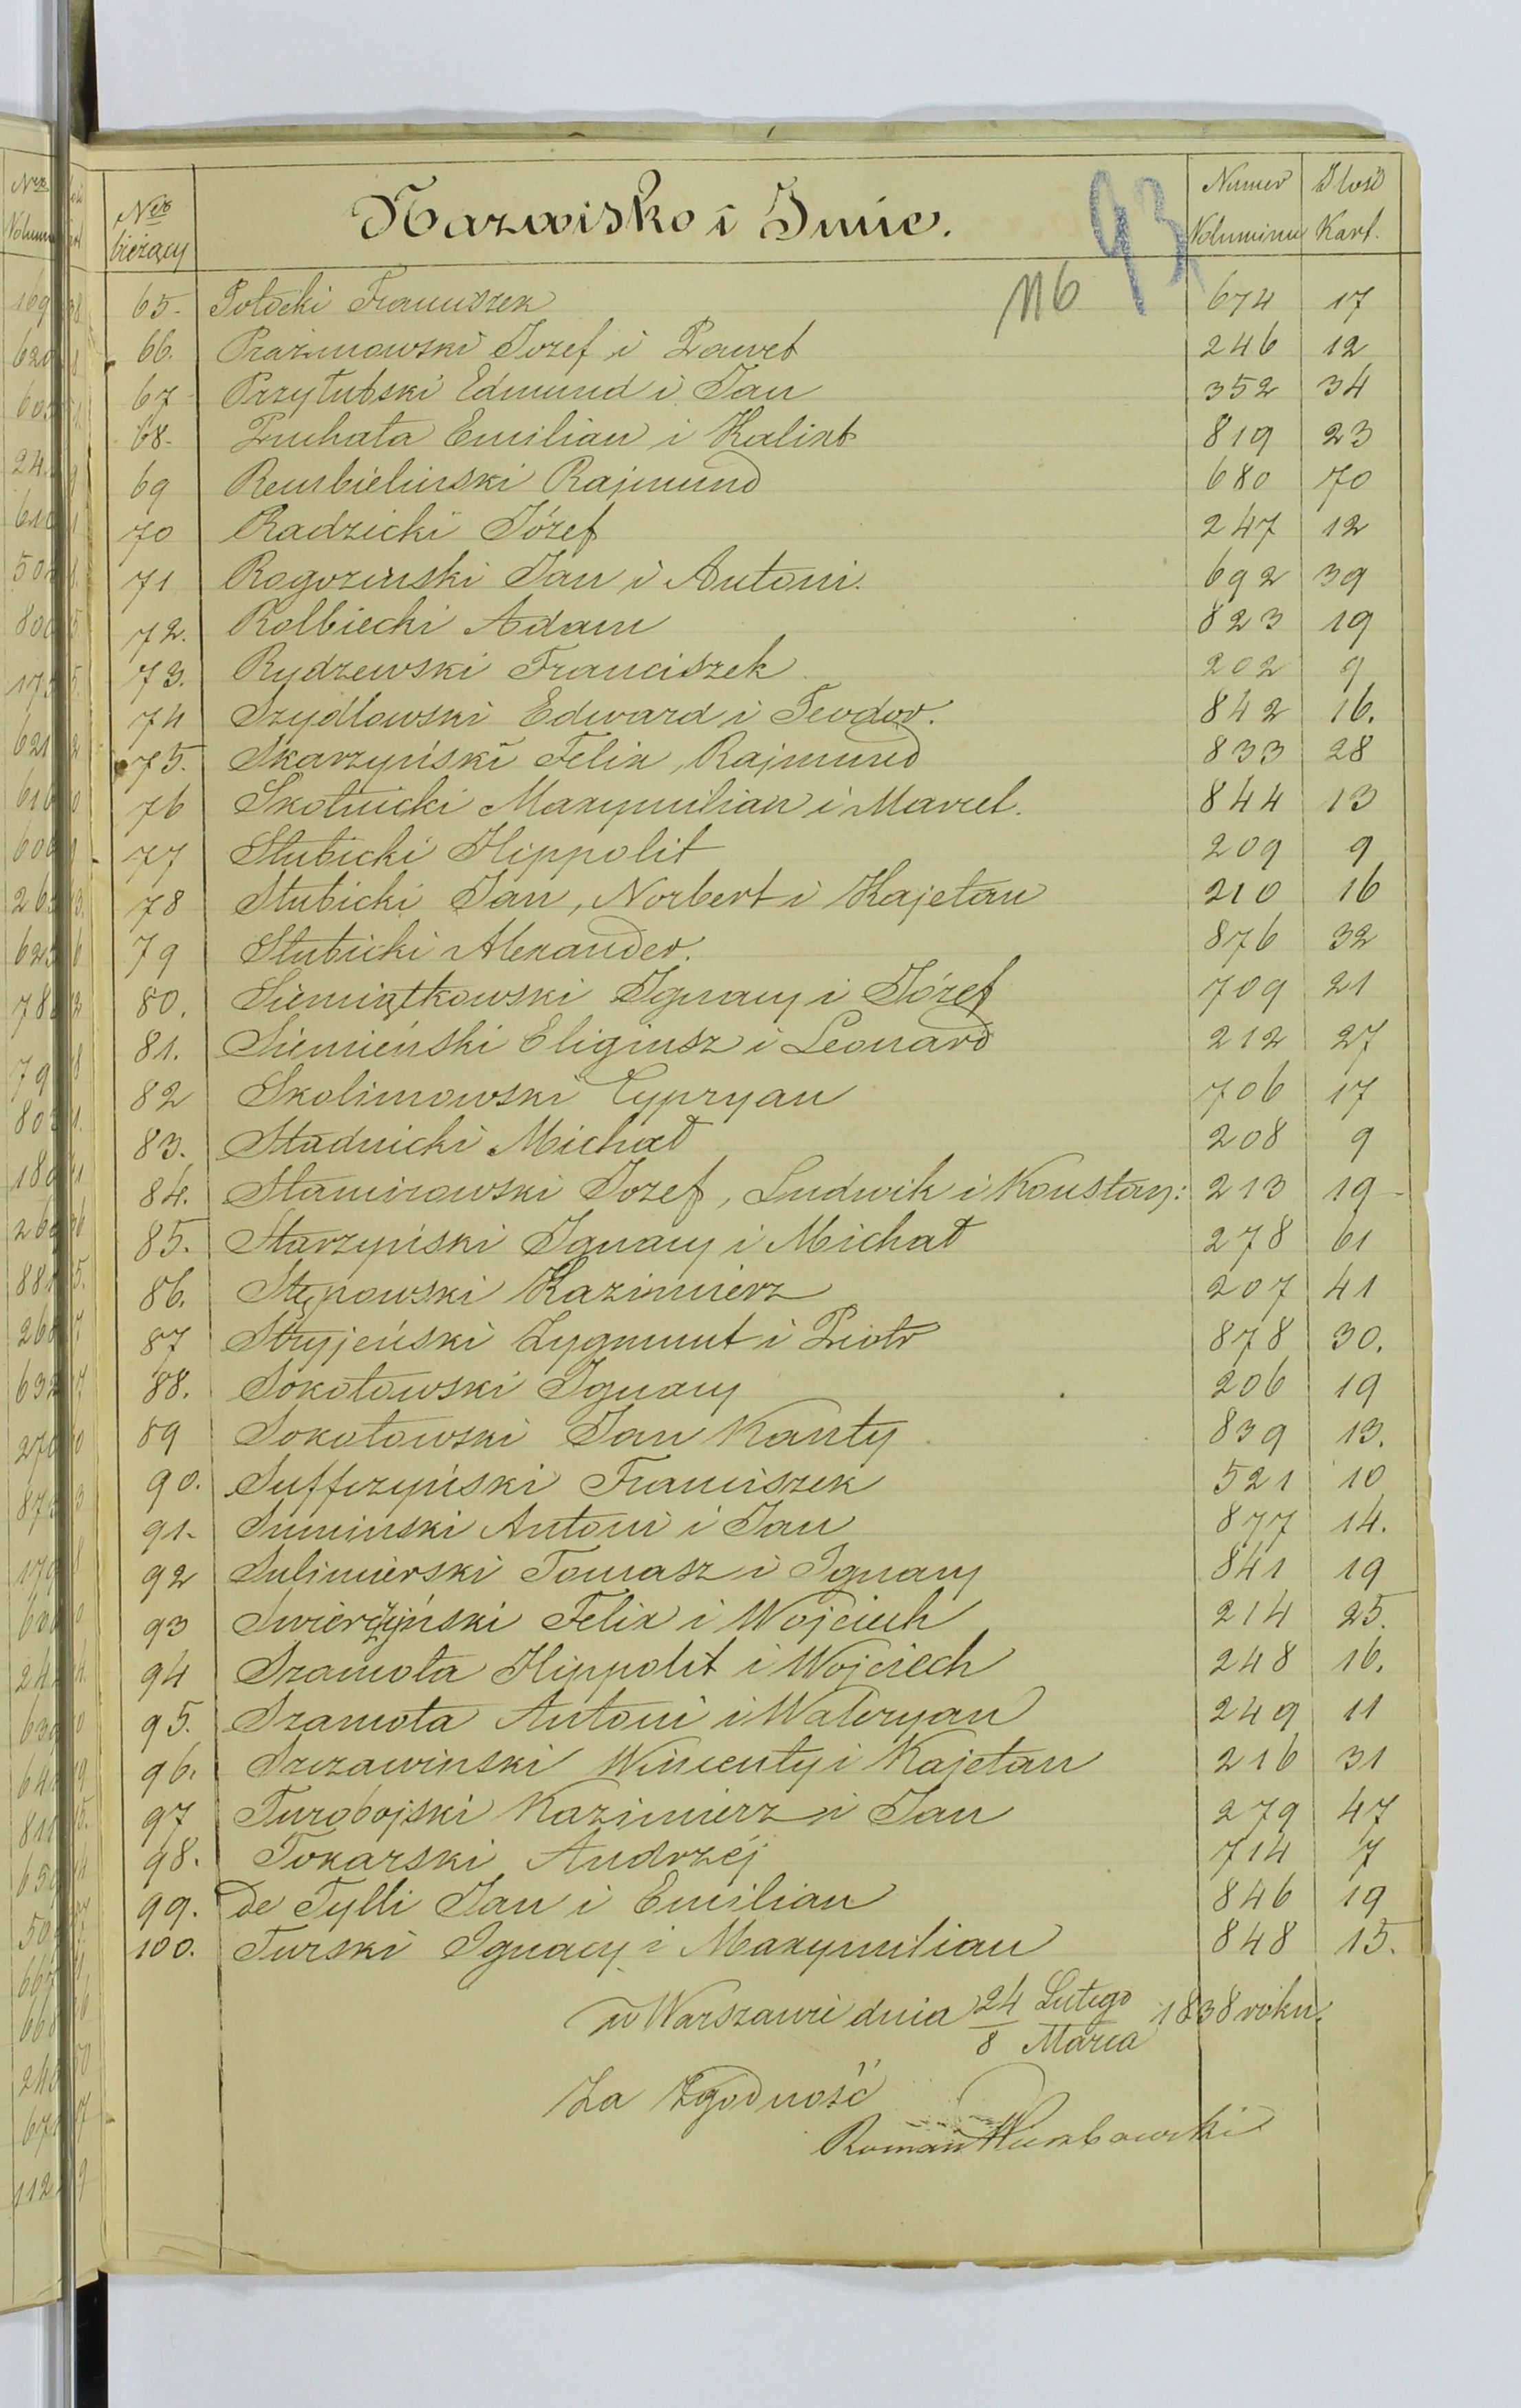 Nro bieżący Nazwisko i Imie. Numer Voluminu Ilość Kart.
93
116
65- Potocki Franciszek 674 17
66. Prażmowski Jozef i Paweł 246 12
67- Przyłubski Edmund i Jan 352 34
68- Puchała Emilian i Kalixt 819 23
69 Rembielinski Rajmund 680 70
70 Radzicki Józef 247 12
71 Rogozinski Jan i Antoni. 692 39
72. Rolbiecki Adam 823 19
73. Rydzewski Franciszek 202 9
74 Szydlowski Edward i Teodor. 842 16.
75. Skarzyński Felix, Rajmund 833 28
76 Skotnicki Maxymilian i Marcel. 844 13
77 Słubicki Hippolit 209 9
78 Słubicki Jan, Norbert i Kajetan 210 16
79 Słubicki Alexander. 876 32
80. Siemiątkowski Ignacy i Józef 709 21
81. Siemieński Eligiusz i Leonard 212 27
82 Skolimowski Cypryan 706 17
83. Stadnicki Michał 208 9
84. Stamirowski Jozef, Ludwik i Konstan: 213 19-
85. Starzyński Ignacy i Michał 278 61
86. Stępowski Kazimierz 207 41
87 Stryjeński Zygmunt i Piotr 878 30.
88. Sokołowski Ignacy 206 19
89 Sokołowski Jan Kanty 839 13.
90. Suffczyński Franciszek 521 10
91- Suminski Antoni i Jan 877 14.
92 Sulimierski Tomasz i Ignacy 841 19
93 Swierżyński Felix i Wojciech 214 25.
94 Szamota Hippolit i Wojciech 248 16.
95. Szamota Antoni i Waleryan 249 11
96. Szczawinski Wincenty i Kajetan 216 31
97 Turobojski Kazimierz i Jan 279 47
98. Tokarski Andrzéj 714 7
99. de Tylli Jan i Emilian 846 19
100. Turski Ignacy i Maxymilian 848 15.
w Warszawie dnia 24 Lutego / 8 Marca 1838 roku.
Za Zgodność
Roman